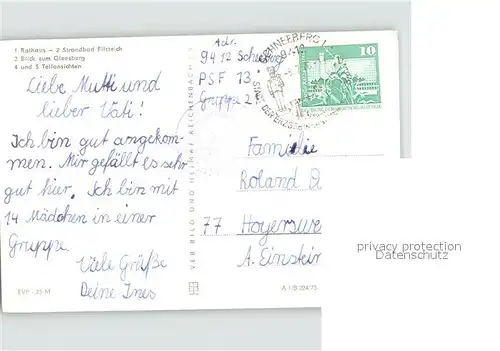 1 Rathaus – 2 Strandbad Filzteich
3 Blick zum Gleesberg
4 und 5 Teilansichten
Liebe Mutti und
lieber Vati!
Ich bin gut angekom-
men. Mir gefällt es sehr
gut hier. Ich bin mit
14 Mädchen in einer
Gruppe.
Viele Grüße
Deine Ines
EVP -,25 M
VEB BILD UND HEIMAT REICHENBACH
Adr.
9412
PSF 13
Gruppe
SCHNEEBERG
10
Familie
Roland
77
A. Einstein
privacy protection
Datenschutz